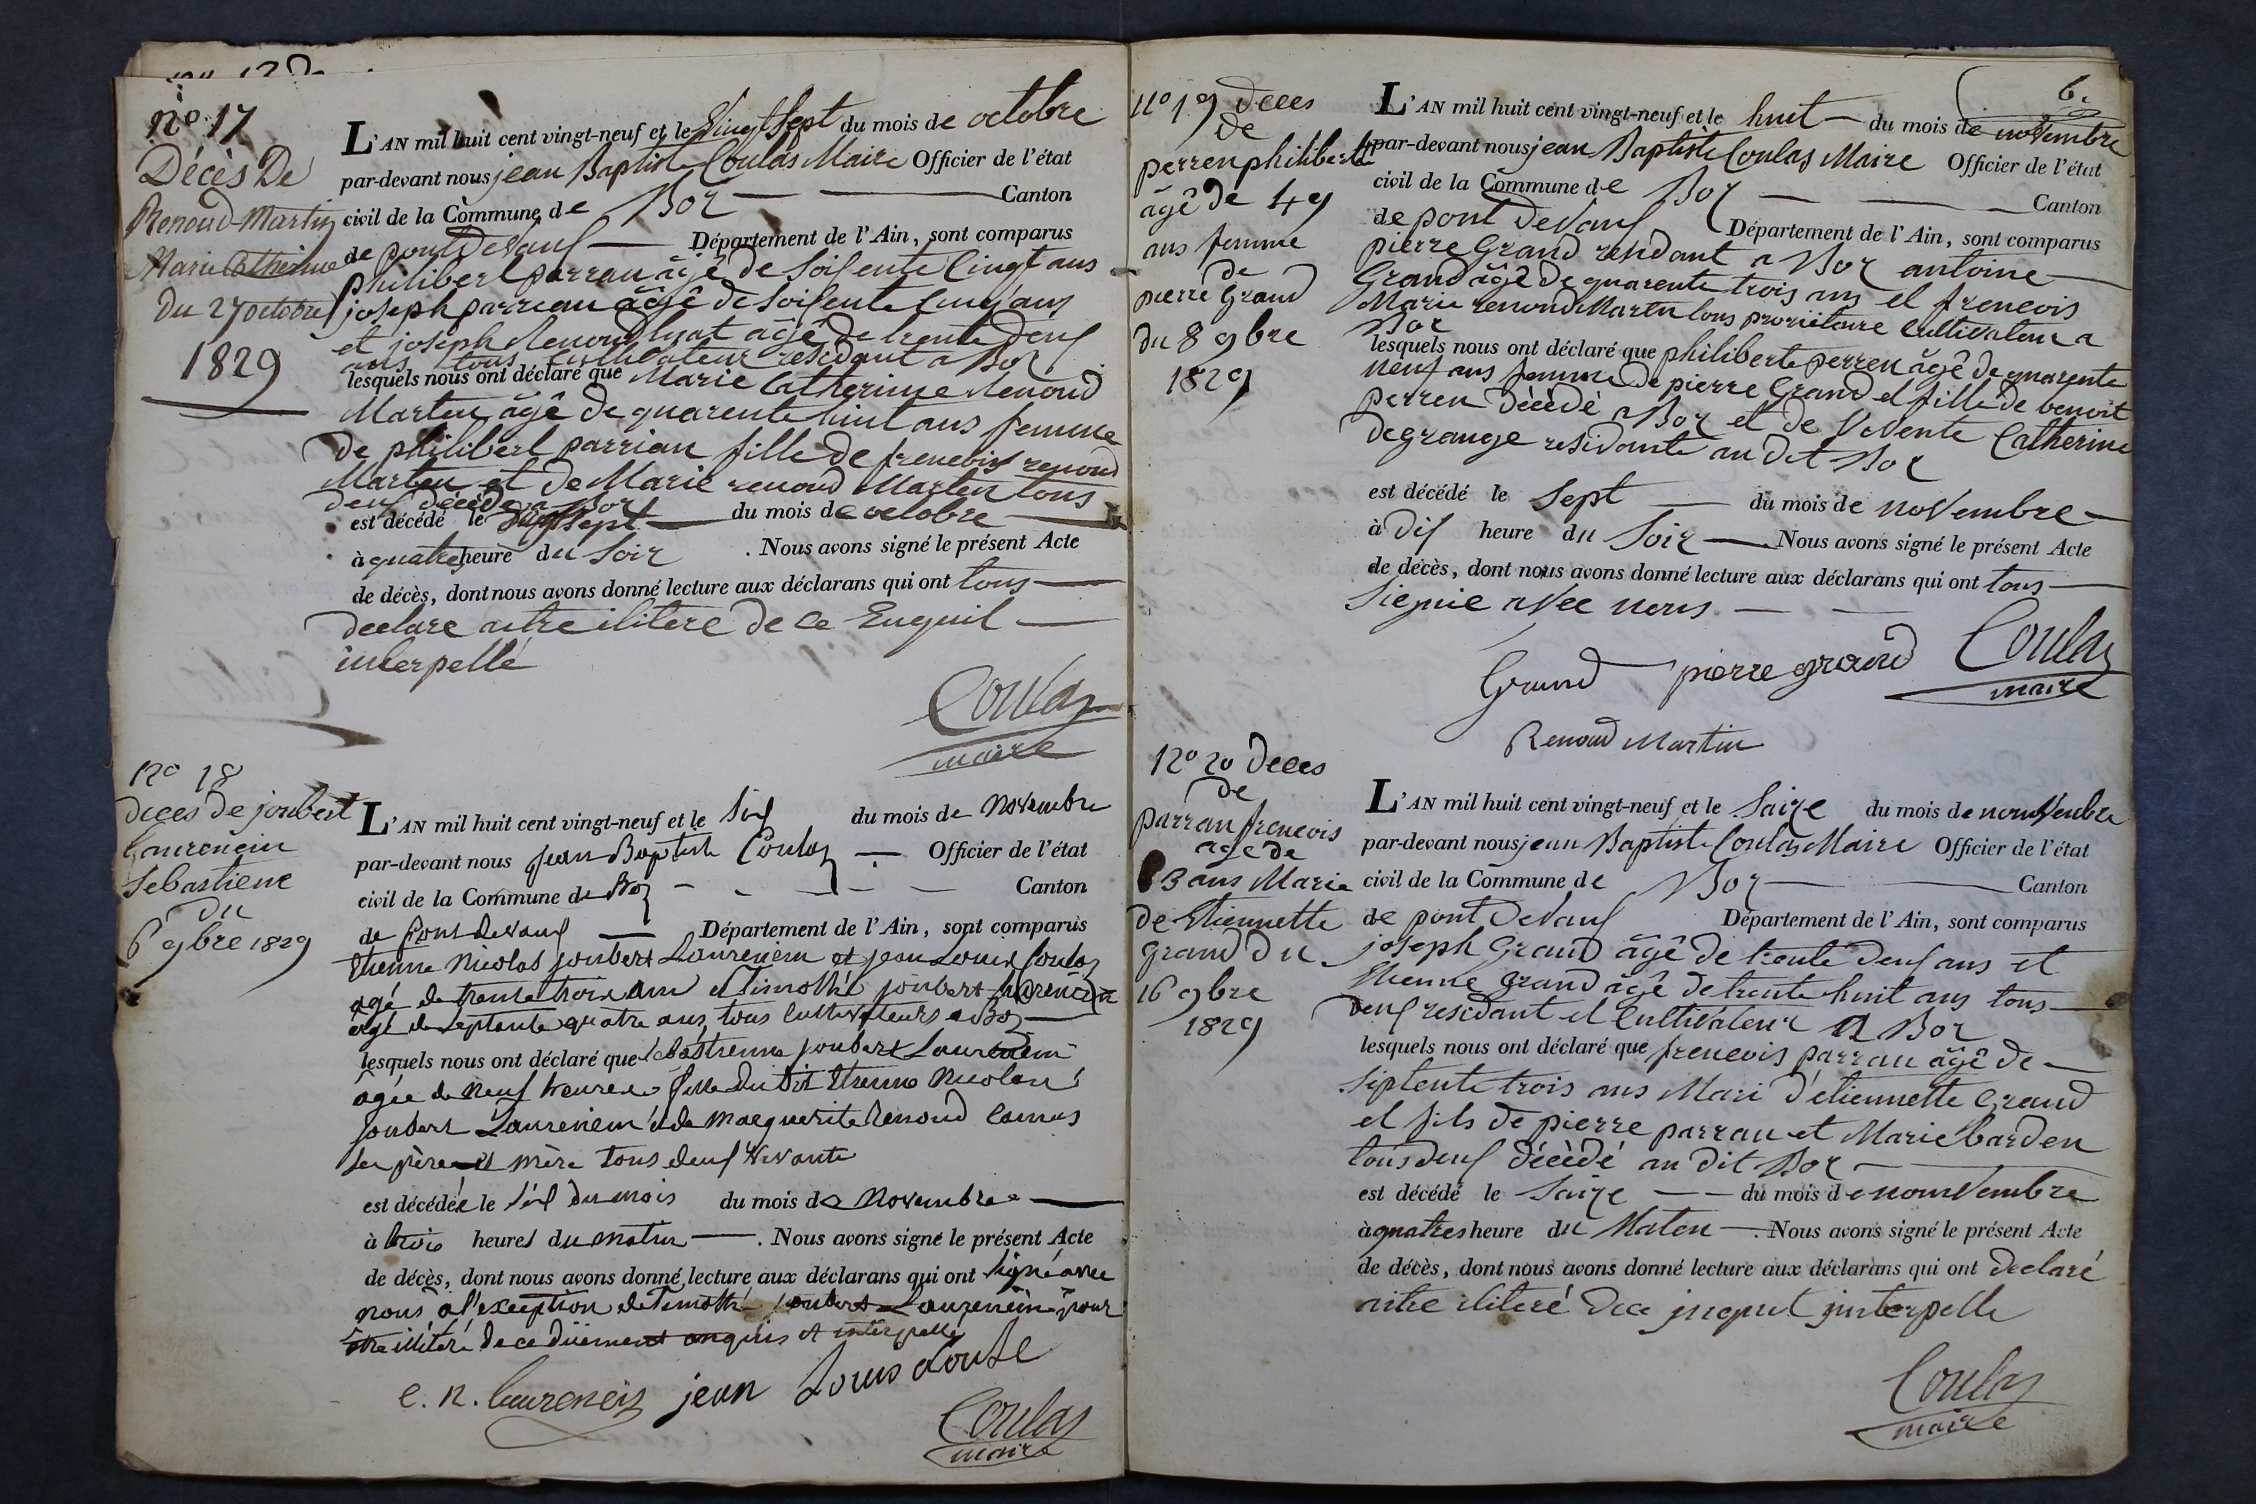 nº 17
Décès De
Renoud-Martin
Marie Catherine
du 27 octobre
1829
L'AN mil huit cent vingt-neuf et le Vingt Sept du mois de octobre
par-devant nous jean Baptiste Coulas Maire Officier de l'état
civil de la Commune de Boz Canton
de pont DeVaux Département de l'Ain, sont comparus
philibert parrau âgê de Soisente Cingt ans
joseph parreau âgê de Soisente Cinq ans
et joseph Renoud âgê de trente deux
ans tous Cultivateur residant a Boz
lesquels nous ont déclaré que Marie Catherine Renoud
Marten âgê de quarente huit ans femme
de philibert parrian fille de frencois renoud
Marten et de Marie renoud Marten tous
deux décédé a Boz
est décédé le Vingt Sept du mois de octobre
à quatres heure du Soir . Nous avons signé le présent Acte
de décès, dont nous avons donné lecture aux déclarans qui ont tous
declare aitre ilitere de ce Enquil
interpellé
Coulas
maire
nº 18
deces de joubert
Laurencin
Sebastiene
du
6 9bre 1829
L'AN mil huit cent vingt-neuf et le Six du mois de Novembre
par-devant nous Jean Baptiste Coulas Officier de l'état
civil de la Commune de Boz Canton
de Pont de Vaux Département de l'Ain, sont comparus
Etienne Nicolas joubert Laurencin et jean Louis Coulas
agé de trente trois ans et Timothé joubert
âgé de septante quatre ans, tous Cultivateurs a Boz
lesquels nous ont déclaré que Sébastienne joubert Laurencin
âgée de neuf heures fille du dit Etienne Nicolas
joubert Laurencin & de Marguerite Renoud Camus
ses père et mère tous deux vivants
est décédée le Six du mois du mois de Novembre
à trois heures du matin . Nous avons signé le présent Acte
de décès, dont nous avons donné lecture aux déclarans qui ont signé avec
nous à l'exception de Timothé joubert Laurencin pour
être illitéré de ce dûement enquis et interpellé
e. n. laurencin jean Louis
Coulas
maire
6.
nº 19 deces
de
perren philiberte
âgê de 49
ans femme
de
pierre Grand
du 8 9bre
1829
L'AN mil huit cent vingt-neuf et le huit du mois de noVembre
par-devant nous jean Baptiste Coulas Maire Officier de l'état
civil de la Commune de Boz Canton
de pont deVaux Département de l'Ain, sont comparus
pierre Grand residant a Boz antoine
Grand âgê de quarente trois ans et frencois
Marie renoud Marten tous proriètaire Cultivateur a
Boz
lesquels nous ont déclaré que philiberte perren âgê de quarente
neuf ans femme de pierre Grand et fille de benoit
perren dècèdè a Boz et de ViVente Catherine
degrange residante au dit Boz
est décédé le Sept du mois de noVembre
à dix heure du Soir Nous avons signé le présent Acte
de décès, dont nous avons donné lecture aux déclarans qui ont tous
Siegnie aVec nous
Grand pierre grand Coulas
maire
Renoud Martin
nº 20 deces
de
parrau frencois
age de
3 ans Marie
de Etiennette
grand du
16 9bre
1829
L'AN mil huit cent vingt-neuf et le Saize du mois de nomVembre
par-devant nous jean Baptiste Coulas Maire Officier de l'état
civil de la Commune de Boz Canton
de pont deVaux Département de l'Ain, sont comparus
joseph Grand âgê de trente deux ans et
Etienne grand âgê de trente huit ans tous
deux residant et CultiVateur a Boz
lesquels nous ont déclaré que frencois parrau âgê de
Siptente trois ans Mari d'etiennette Grand
et fils de pierre parrau et Marie barden
tous deux dècèdé au dit Boz
est décédé le Saize du mois de nomVembre
à quatres heure du Maten . Nous avons signé le présent Acte
de décès, dont nous avons donné lecture aux déclarans qui ont declaré
aitre iliteré dece jnequit jnterpelle
Coulas
maire